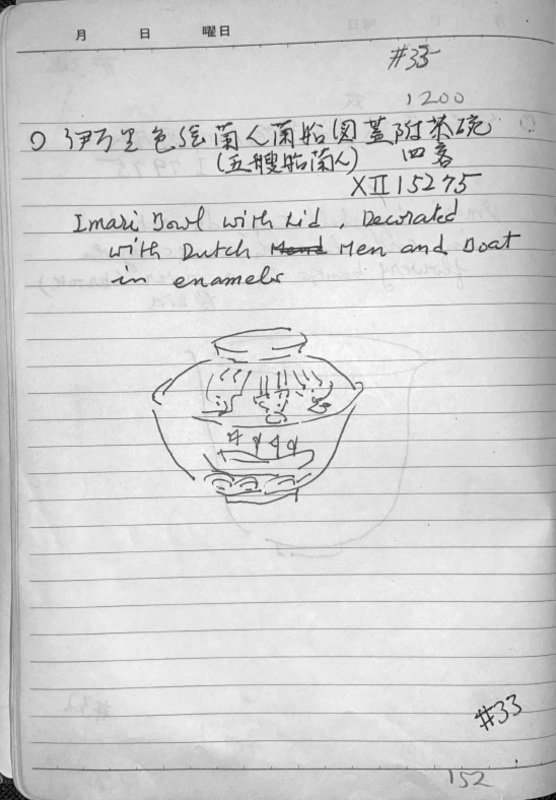 月 日 曜日
#33
1200
伊万里色絵蘭人蘭船図蓋附茶碗
(五艘船蘭人) 四客
XII 15275
Imari Bowl with Lid, Decorated
with Dutch Men and Boat
in enamels
#33
152